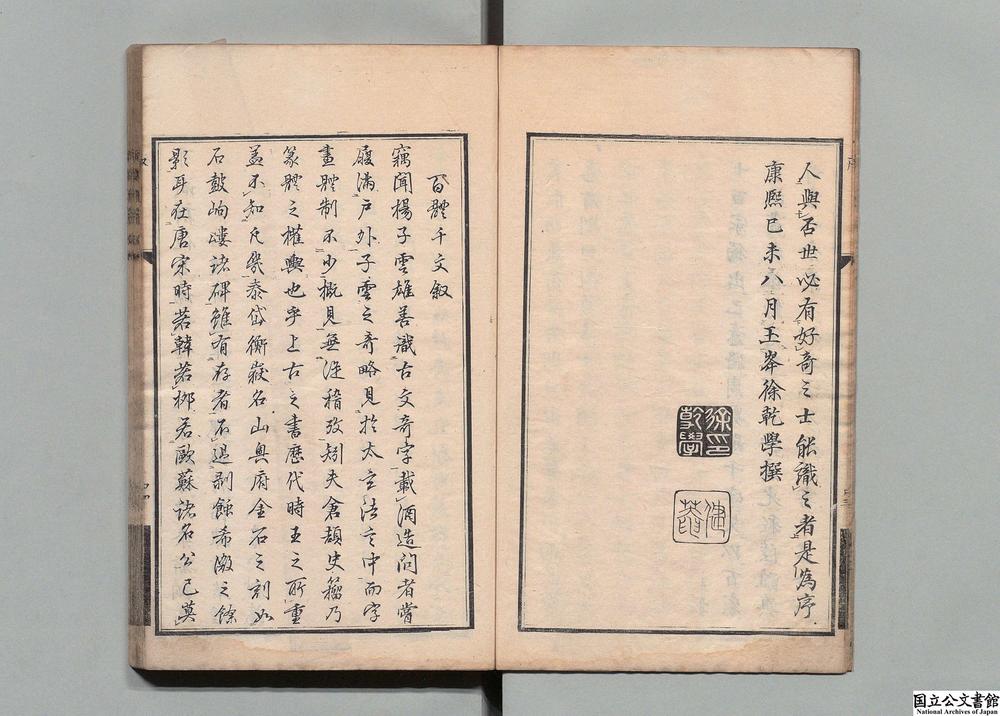 人與否世必有好奇之士能識之者是爲序
康熙己未八月玉峯徐乾學撰
徐乾學印
健菴
百體千文叙
竊聞楊子雲雄善識古文奇字載酒造问者嘗
履滿戸外子雲之奇略見扵太玄法言中而字
畫體制不少概見無從稽攷矧夫倉頡史籀乃
篆體之權輿也乎上古之書歴代時王之所重
盖不知凢幾泰岱衡嶽名山奥府金石之刻如
石皷岣嶁諸碑雖有存者不過剥蝕希微之餘
影耳在唐宋時若韓若栁若歐蘇諸名公已莫
国立公文書館
National Archives of Japan